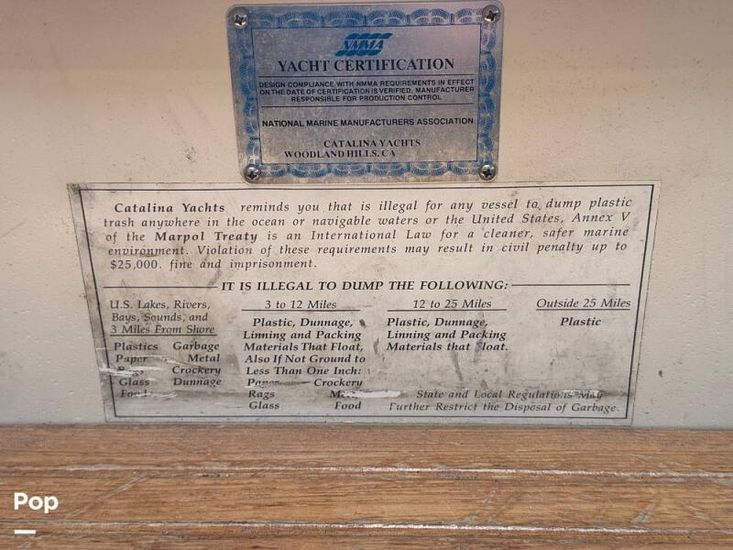 NMMA
YACHT CERTIFICATION
DESIGN COMPLIANCE WITH NMMA REQUIREMENTS IN EFFECT
ON THE DATE OF CERTIFICATION IS VERIFIED. MANUFACTURER
RESPONSIBLE FOR PRODUCTION CONTROL
NATIONAL MARINE MANUFACTURERS ASSOCIATION
CATALINA YACHTS
WOODLAND HILLS, CA
Catalina Yachts reminds you that is illegal for any vessel to dump plastic
trash anywhere in the ocean or navigable waters or the United States, Annex V
of the Marpol Treaty is an International Law for a cleaner, safer marine
environment. Violation of these requirements may result in civil penalty up to
$25,000. fine and imprisonment.
IT IS ILLEGAL TO DUMP THE FOLLOWING:
U.S. Lakes, Rivers,
Bays, Sounds, and
3 Miles From Shore
Plastics Garbage
Paper Metal
Crockery
Glass Dunnage
3 to 12 Miles
Plastic, Dunnage,
Linning and Packing
Materials That Float,
Also If Not Ground to
Less Than One Inch:
Paper Crockery
Rags
Glass Food
12 to 25 Miles
Plastic, Dunnage,
Linning and Packing
Materials that float.
Outside 25 Miles
Plastic
State and Local Regulations May
Further Restrict the Disposal of Garbage.
Pop